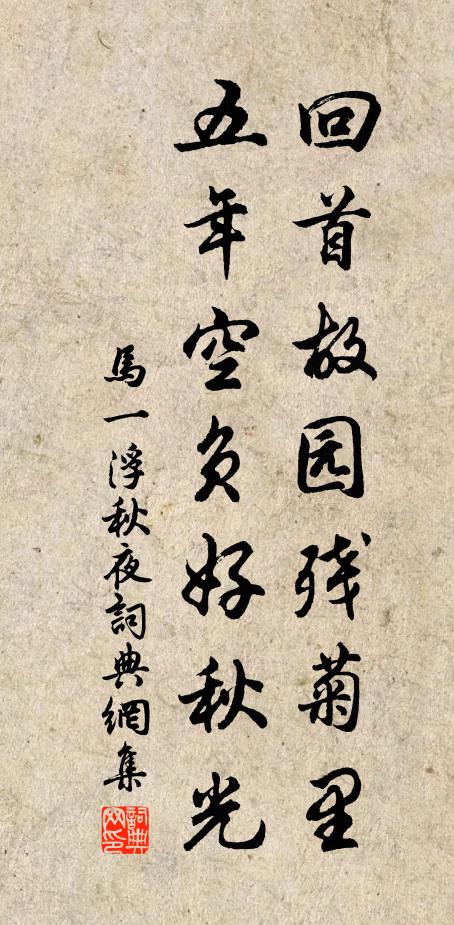 回首故园残菊里
五年空负好秋光
馬一浮秋夜詞典網集
詞典
网印